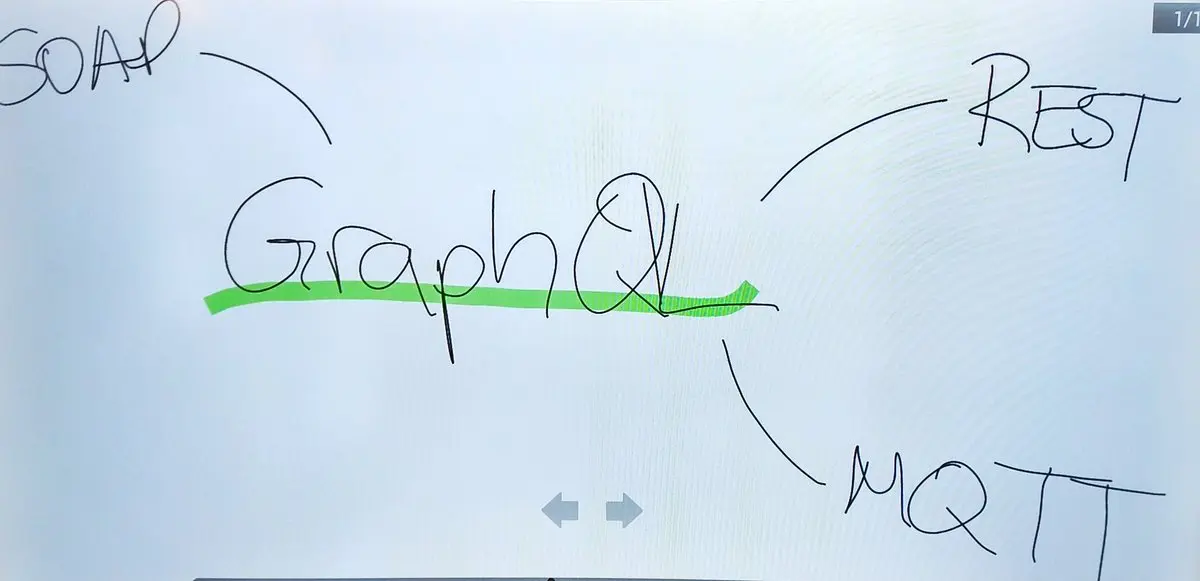 SOAP
1/1
REST
GraphQL
MQTT